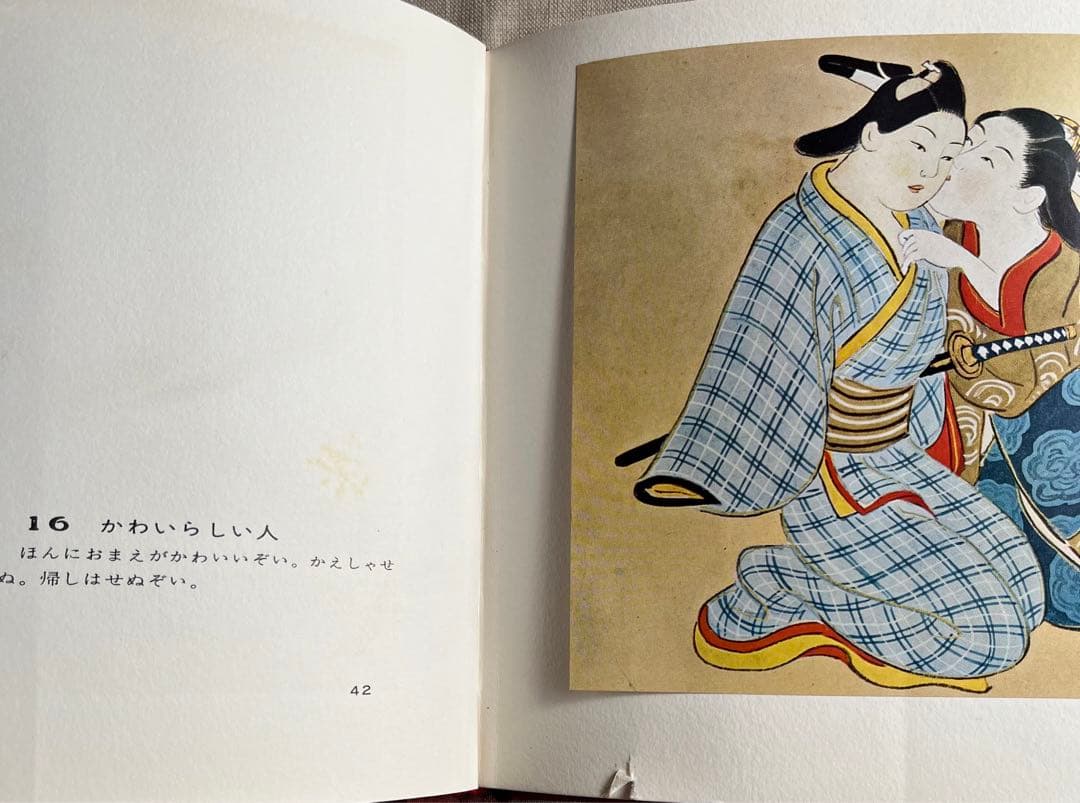 16 かわいらしい人
ほんにおまえがかわいいぞい。かえしゃせ
ぬ。帰しはせぬぞい。
42